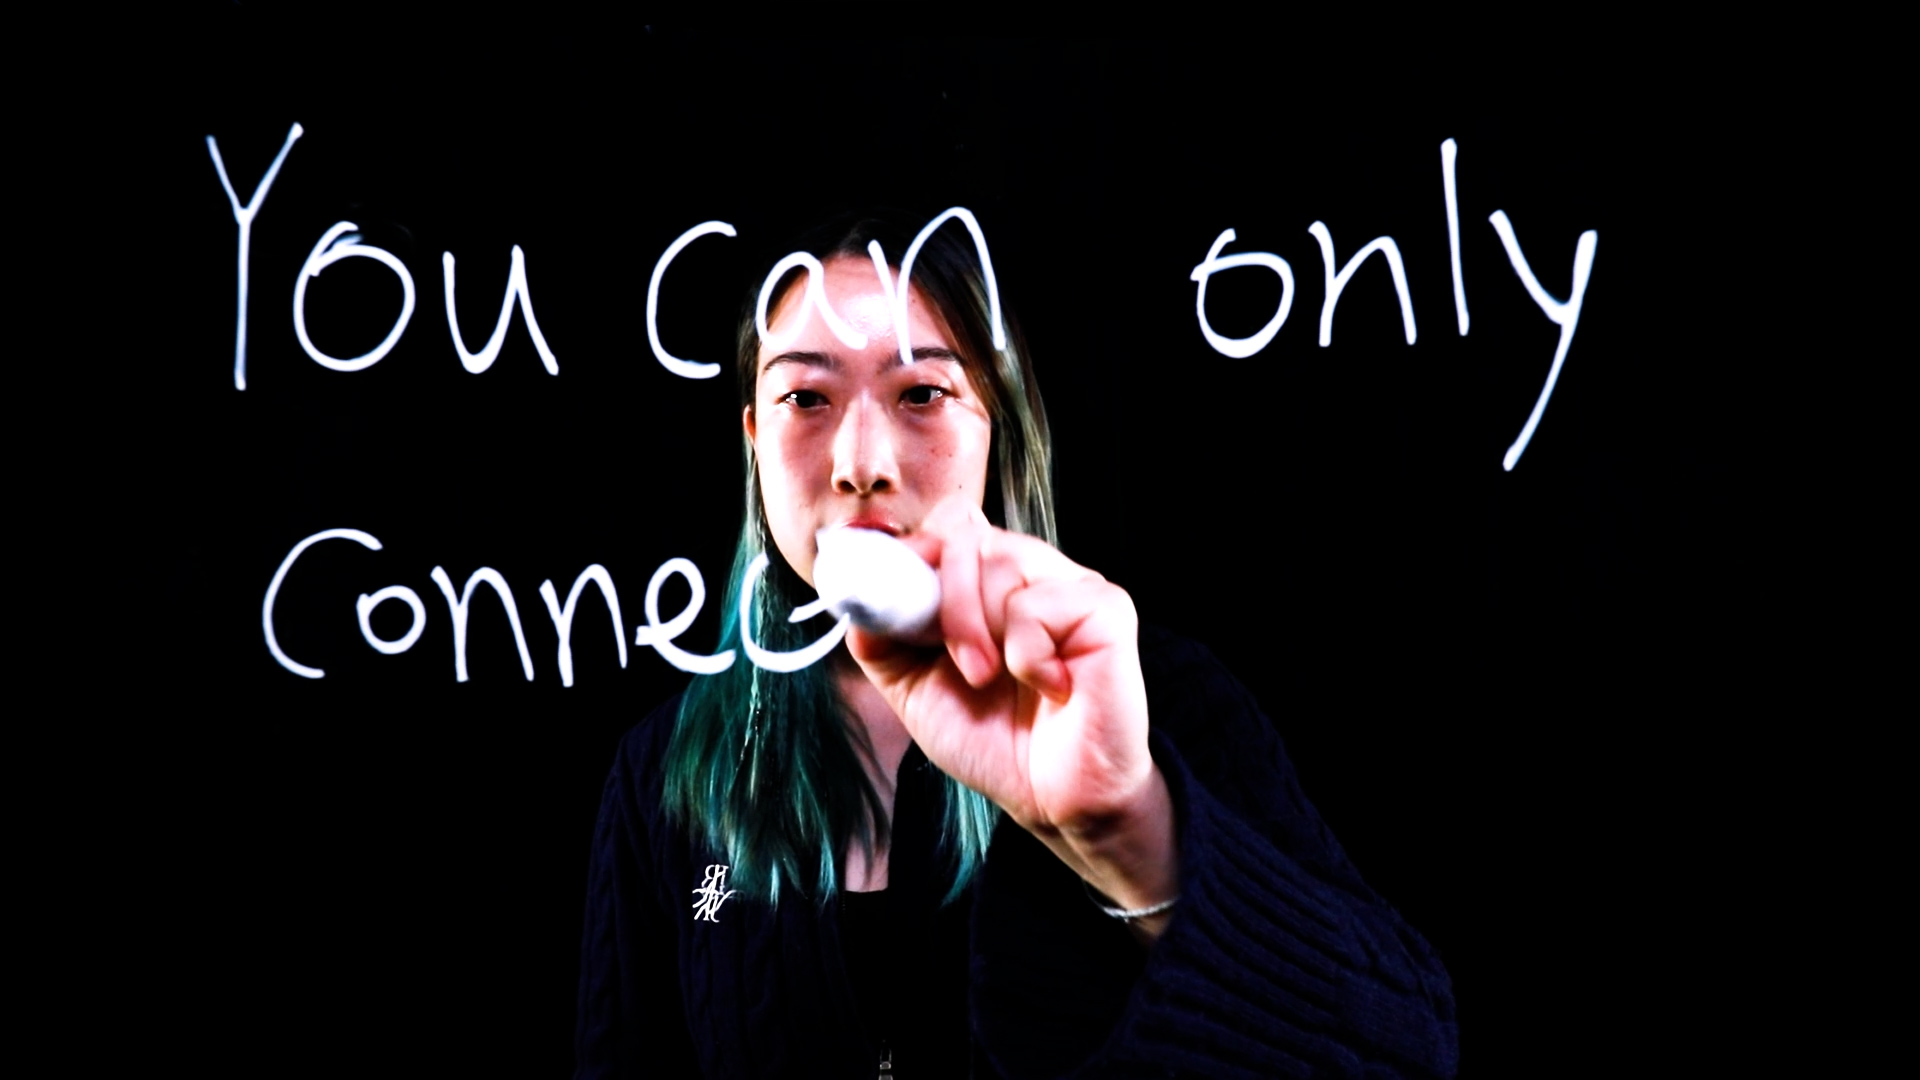 You can only
Connec